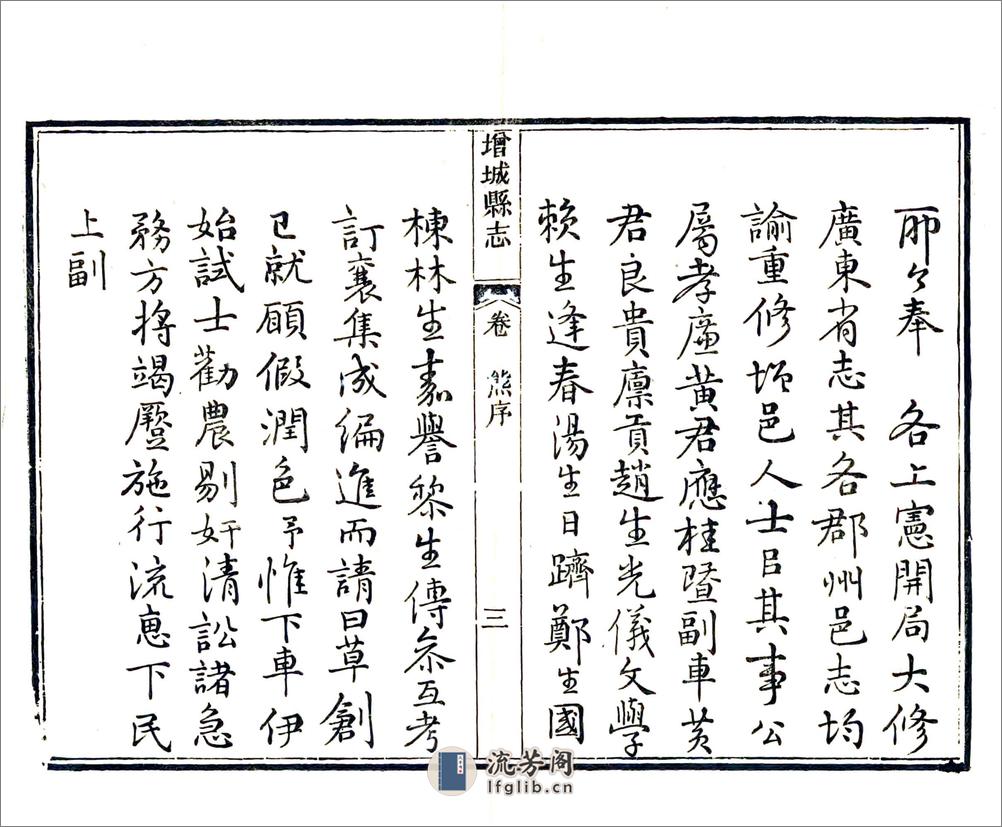 而今奉　各上憲開局大修
廣東省志其各郡州邑志均
諭重修增邑人士㠯其事公
屬孝廉黃君應桂暨副車黃
君良貴廩貢趙生光儀文學
賴生逢春湯生日躋鄭生國
增城縣志
卷　熊序
三
棟林生嘉譽黎生傳叅互考
訂襄集成編進而請曰草創
已就願假潤色予惟下車伊
始試士勸農剔奸清訟諸急
務方將竭蹷施行流惠下民
上副
流芳阁
lfglib.cn